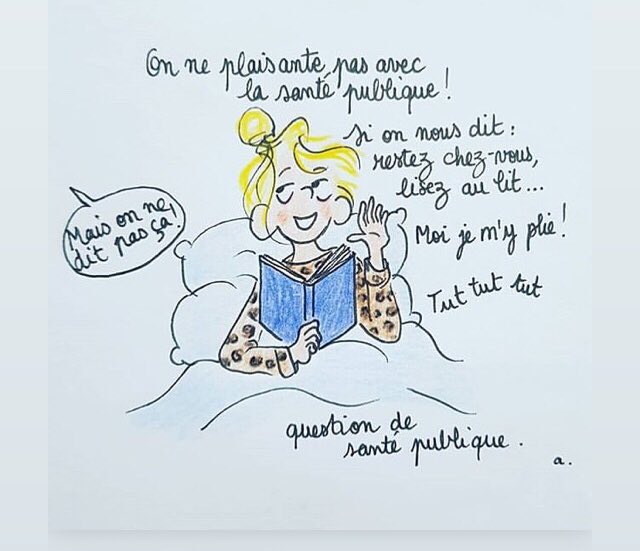 On ne plaisante pas avec
la santé publique !
si on nous dit :
restez chez-vous,
lisez au lit...
Mais on ne
dit pas ça !
Moi je m'y plie !
Tut tut tut
question de
santé publique .
a.